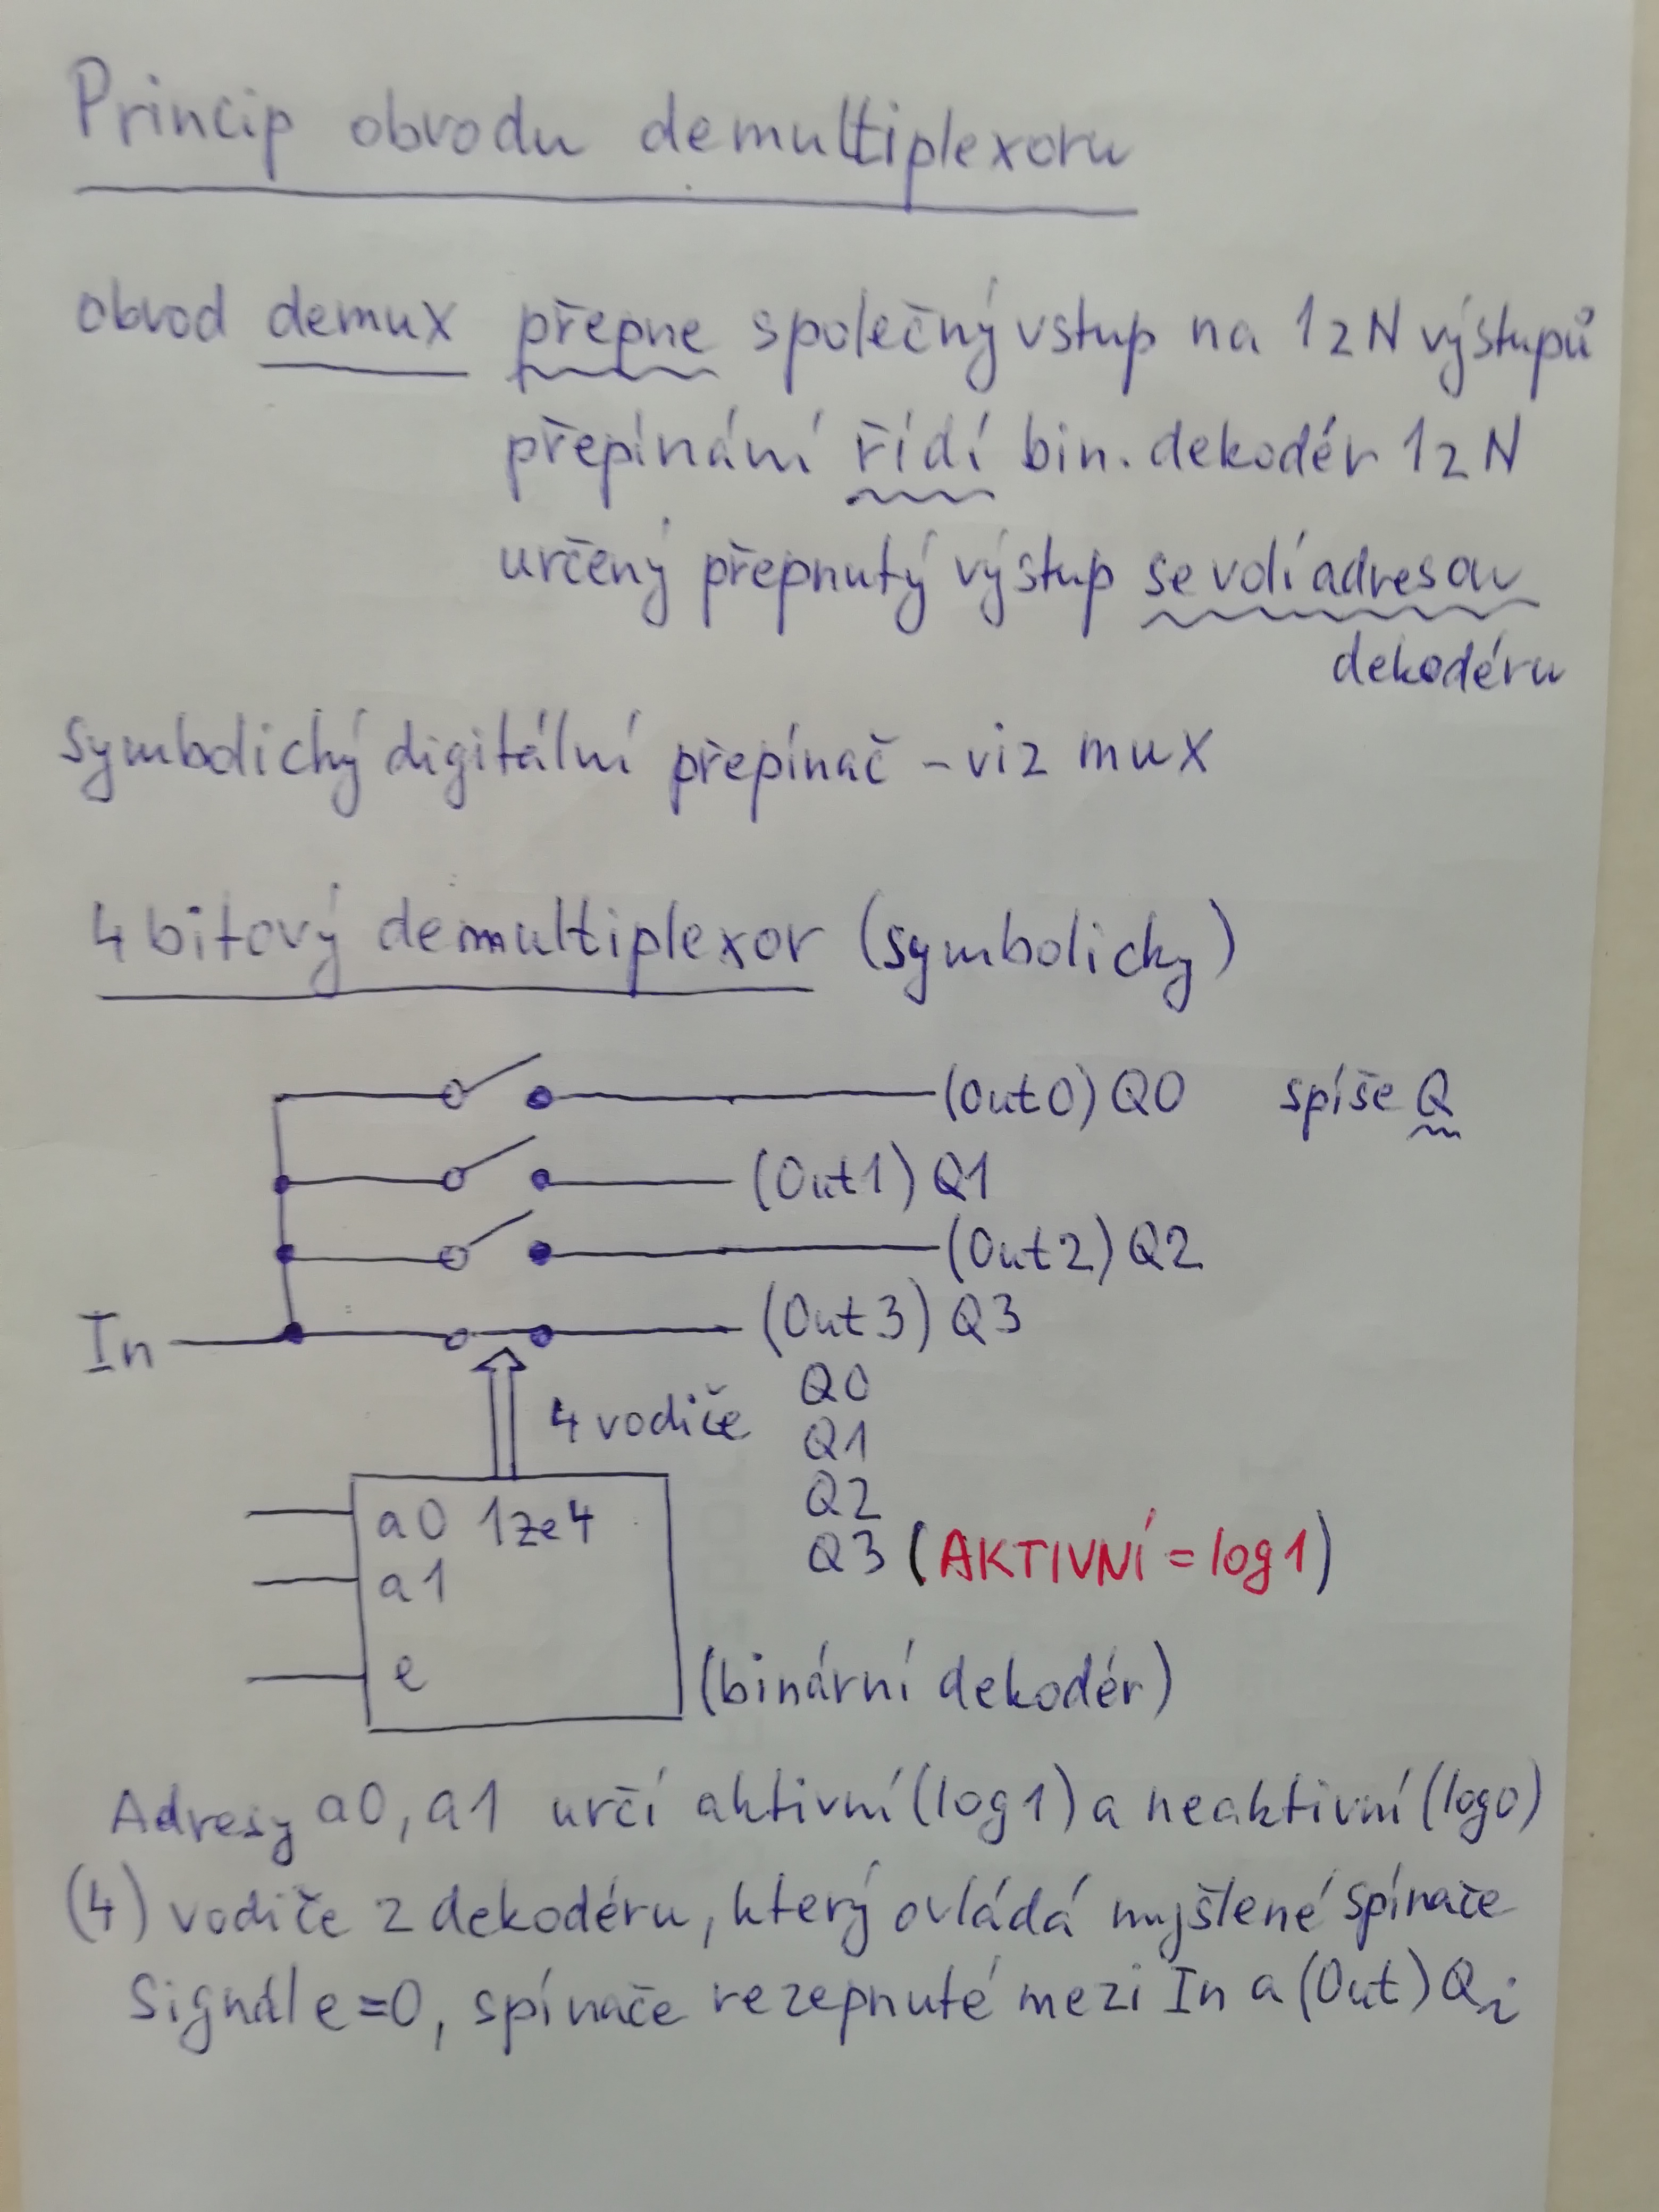 Princip obvodu demultiplexoru
obvod demux přepne společný vstup na 1 z N výstupů
přepínání řídí bin. dekodér 1 z N
určený přepnutý výstup se volí adresou
dekodéru
symbolický digitální přepínač - viz mux
4 bitový demultiplexor (symbolicky)
(Out0) Q0 spíše Q
(Out1) Q1
(Out2) Q2
In (Out3) Q3
4 vodiče Q0
Q1
Q2
a0 1ze4 Q3 (AKTIVNÍ = log1)
a1
e (binární dekodér)
Adresy a0, a1 určí aktivní (log1) a neaktivní (log0)
(4) vodiče z dekodéru, který ovládá myšlené spínače
Signál e=0, spínače rezepnuté mezi In a (Out) Qi